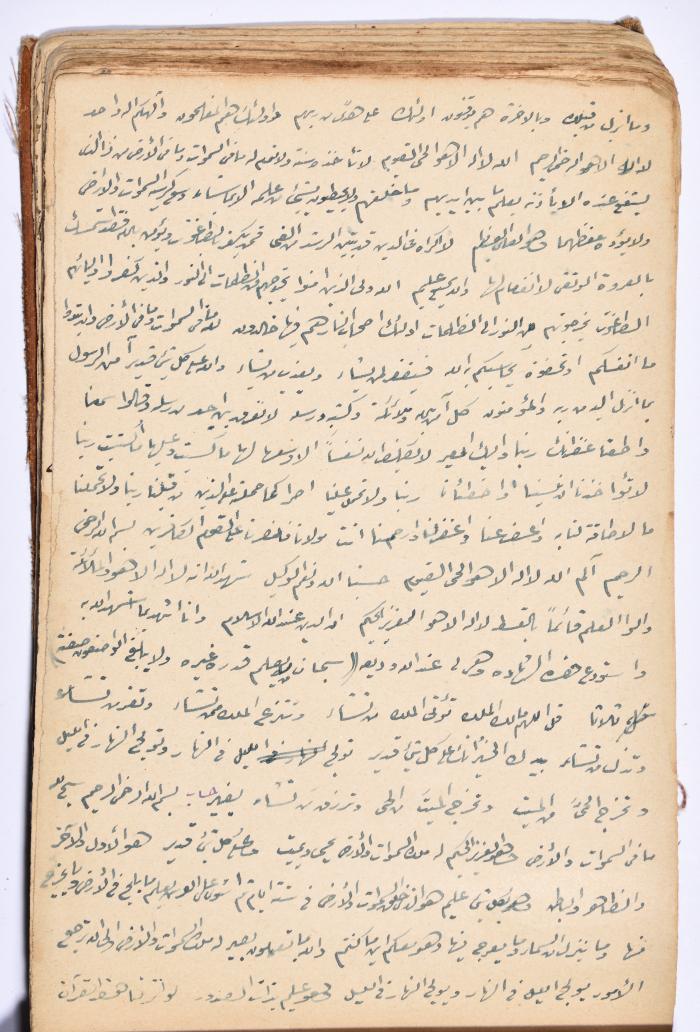 وما انزل من قبلك وبالاخرة هم يوقنون اولئك على هدى من ربهم واولئك هم المفلحون والهكم اله واحد
لا اله الا هو الرحمن الرحيم الله لا اله الا هو الحي القيوم لا تأخذه سنة ولا نوم له ما في السموات وما في الأرض من ذا الذي
يشفع عنده الا بأذنه يعلم ما بين ايديهم وما خلفهم ولا يحيطون بشيئ من علمه الا بما شاء وسع كرسيه السموات والارض
ولا يؤوده حفظهما وهو العلي العظيم لا اكراه في الدين قد تبين الرشد من الغي فمن يكفر بالطاغوت ويؤمن بالله فقد استمسك
بالعروة الوثقى لا انفصام لها والله سميع عليم الله ولي الذين امنوا يخرجهم من الظلمات الى النور والذين كفروا اوليائهم
الطاغوت يخرجونهم من النور الى الظلمات اولئك اصحاب النار هم فيها خالدون لله ما في السموات وما في الأرض وان تبدوا
ما انفسكم او تخفوه يحاسبكم به الله فيغفر لمن يشاء ويعذب من يشاء والله على كل شيئ قدير آمن الرسول
بما انزل اليه من ربه والمؤمنون كل آمن بالله وملائكته وكتبه ورسله لا نفرق بين احد من رسله وقالوا سمعنا
واطعنا غفرانك ربنا واليك المصير لا يكلف الله نفساً الا وسعها لها ما كسبت وعليها ما اكتسبت ربنا
لا تؤاخذنا ان نسينا او اخطئنا ربنا ولا تحمل علينا اصرا كما حملته على الذين من قبلنا ربنا ولا تحملنا
ما لا طاقة لنا به واعف عنا واغفر لنا وارحمنا انت مولانا فانصرنا على القوم الكافرين بسم الله الرحمن
الرحيم آلم الله لا اله الا هو الحي القيوم حسبنا الله ونعم الوكيل شهد الله انه لا اله الا هو والملائكة
واولوا العلم قائماً بالقسط لا اله الا هو العزيز الحكيم ان الدين عند الله الاسلام وانا اشهد بما شهد الله به
واستودع هذه الشهاده وهي لي عند الله وديعه سبحان من لا يعلم قدره غيره ولا يبلغ الواصفون صفته
ثلاثا قل اللهم مالك الملك تؤتي الملك من تشاء وتنزع الملك ممن تشاء وتعز من تشاء
وتذل من تشاء بيدك الخير انك على كل شيئ قدير تولج الليل في النهار وتولج النهار في الليل
وتخرج الحيَّ من الميت وتخرج الميتَ من الحي وترزق من تشاء بغير حساب بسم الله الرحمن الرحيم سبح لله
ما في السموات والأرض وهو العزيز الحكيم له ملك السموات والأرض يحيي ويميت وهو على كل شيئ قدير هو الأول والآخر
والظاهر والباطن وهو بكل شيئ عليم هو الذي خلق السموات والأرض في ستة ايام ثم استوى على العرش يعلم ما يلج في الأرض وما يخرج
منها وما ينزل من السماء وما يعرج فيها وهو معكم اين ما كنتم والله بما تعملون بصير له ملك السموات والأرض والى الله ترجع
الأمور يولج الليل في النهار ويولج النهار في الليل وهو عليم بذات الصدور لو انزلنا هذا القرآن